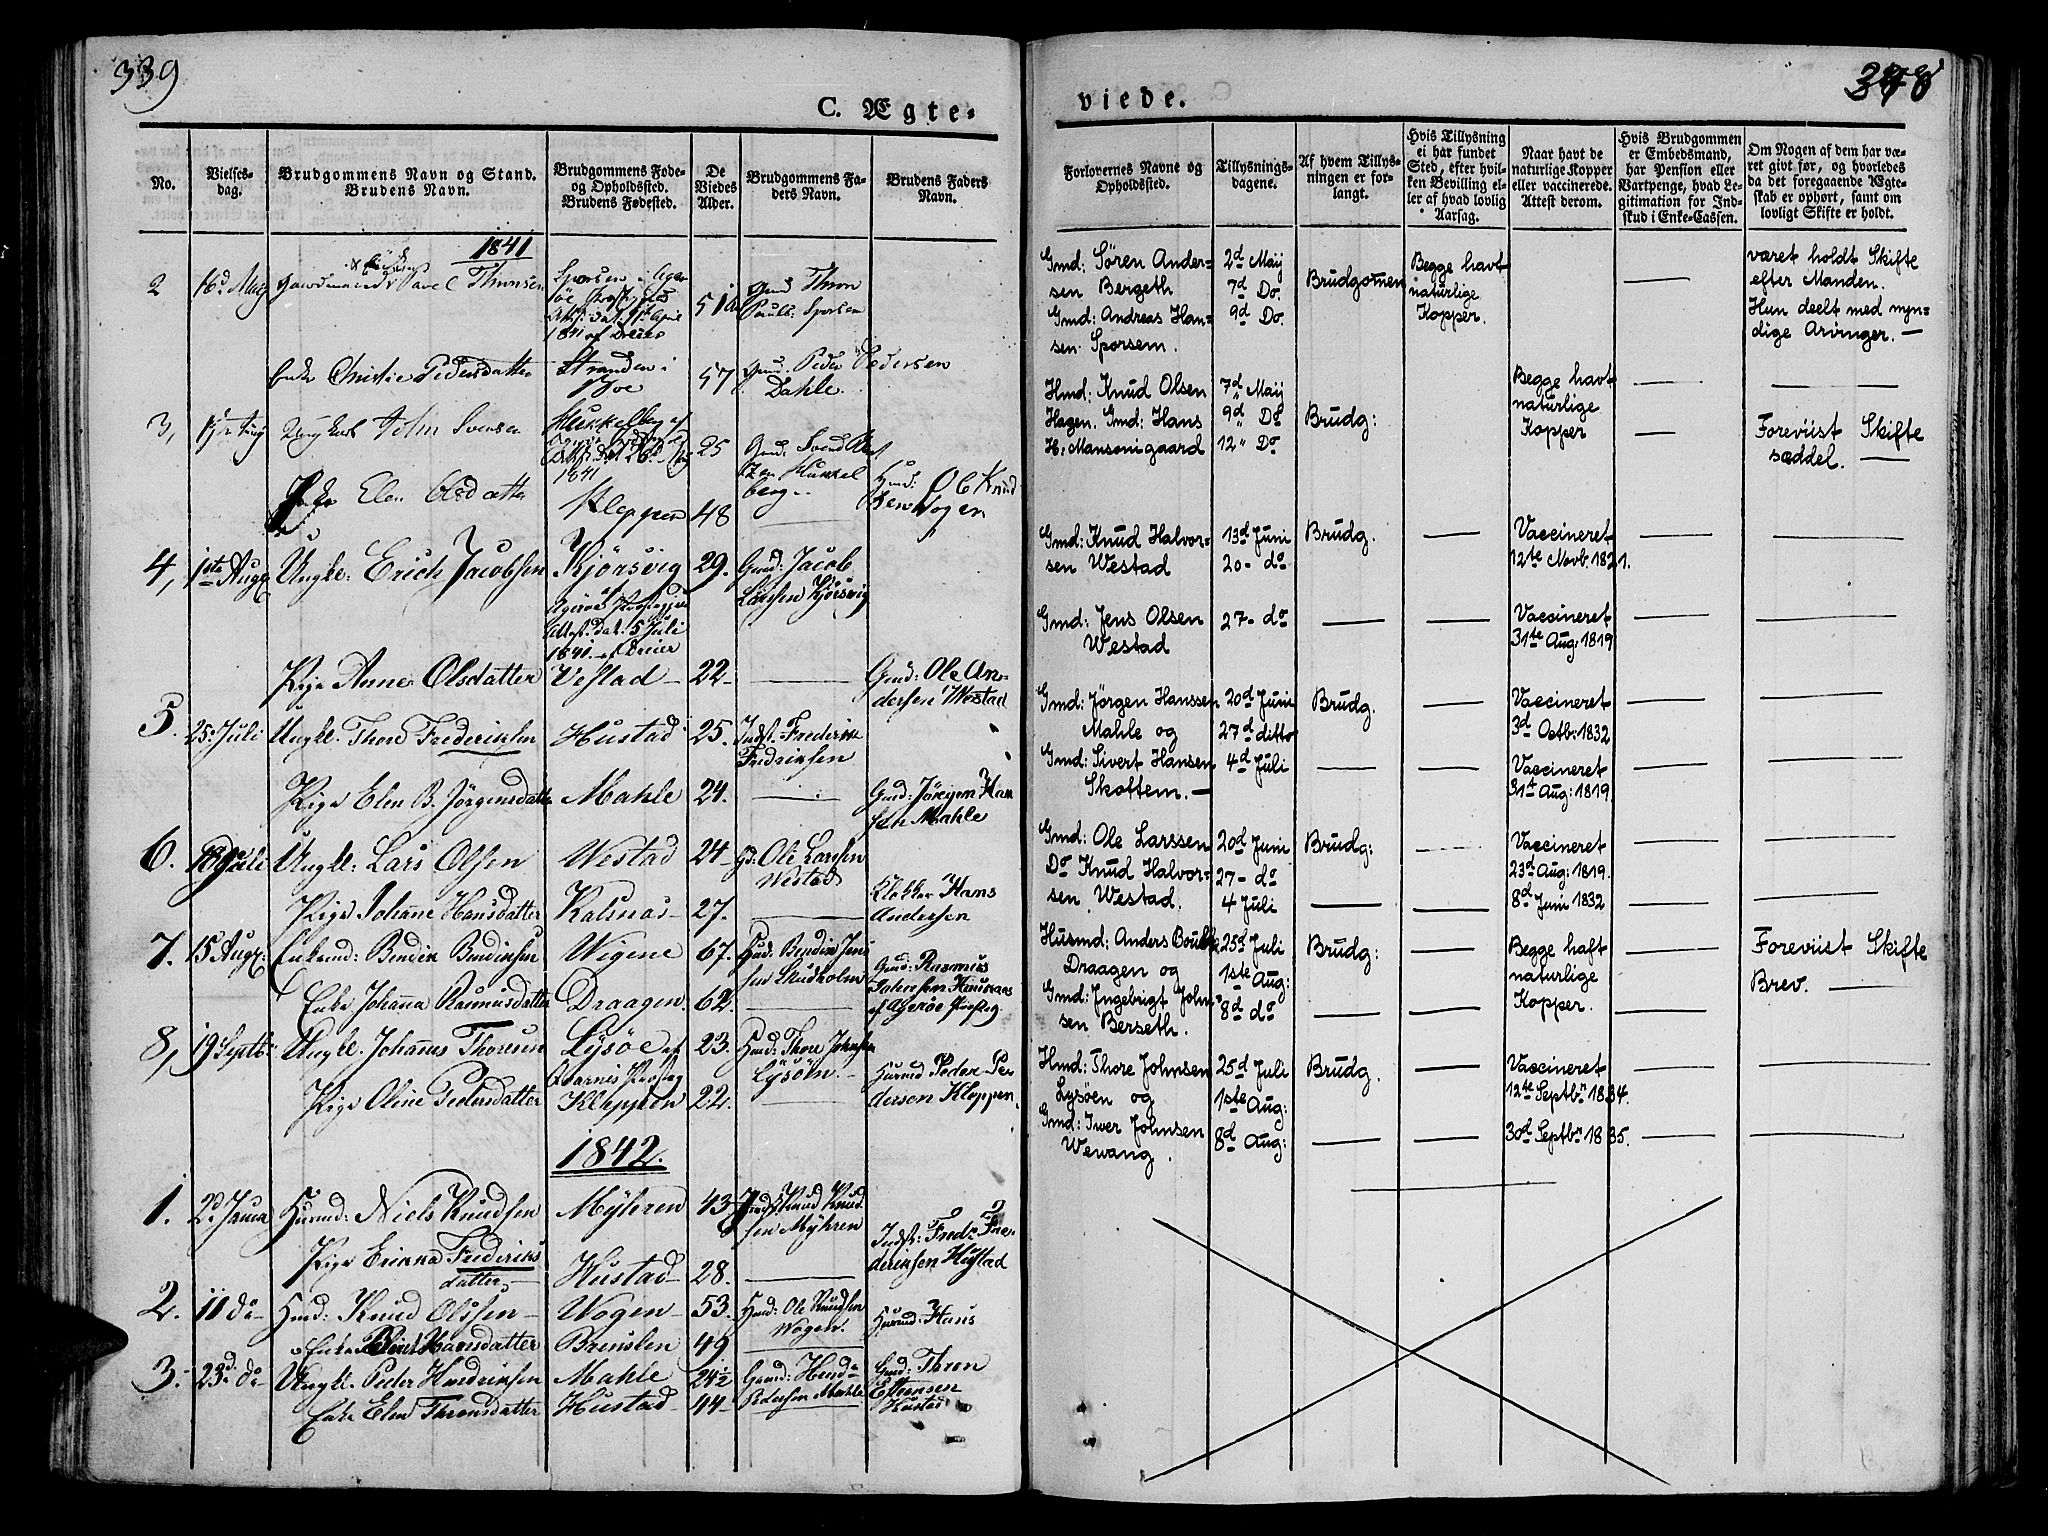 339
C. Ægte-
No.
Vielses-
dag.
Brudgommens Navn og Stand.
Brudens Navn.
Brudgommens Føde-
og Opholdssted.
Brudens Fødested.
De
Viedes
Alder.
Brudgommens Fa-
ders Navn.
Brudens Faders
Navn.
1841
2
16d May
Thronsen
51
Gmd Thron
Enke Christie Pedersdatter
57
Gmd: Peder Pedersen
Dahle.
3,
Ungkarl John Svensen
1841
25
Enke Elen Olsdatter
Kleppen
48
4,
1ste Aug:
Ungkl: Erich Jacobsen
Kjörsvig
29.
Gmd: Jacob
Larsen Kjörsvig
Attest. dat. 5 Juli
1841
Pige Anne Olsdatter
Vestad
22
Gmd: Ole An-
dersen Westad
5.
25 Juli
Ungkl. Thore Frederiksen
Hustad
25.
Indst. Frederik
Fredriksen
Pige Elen B. Jörgensdatter
Mahle
24.
Gmd: Jörgen Han
sen Mahle
6.
Juli
Ungkl: Lars Olsen
Westad
24
Gd: Ole Larsen
Westad
Pige Johanne Hansdatter
Kalsnæs
27.
Klokker Hans
Andersen
7.
15 Aug:
Enkemd: Bendix Bendixsen
Wigene
67.
Hmd: Bendix Jen
Enke Johanna Rasmusdatter
Draagen
62.
Gmd: Rasmus
Johnsen
8,
19 Septb:
Ungkl. Johannes Thoresen
Lysöe
23.
Hmd: Thore Johnsen
Lysöen.
Pige Oline Pedersdatter
Kleppen
22.
Husmd Peder Pe-
dersen Kleppen
1842.
1.
2d Janua
Husmd: Niels Knudsen
Myhren
43
Indst. Knud Knud
sen Myhren
Pige Erikka Frederiks
datter
Hustad
28.
Indst: Fredr: Fre-
deriksen Hustad
2.
11 do
Hmd: Knud Olsen
Wogen
53.
Hmd: Ole Knudsen
Wogen.
Enke Hansdatter
49
Husmd: Hans
3.
23d do
Ungkl. Peder Hendriksen
Mahle
24½
Pedersen Mahle
Enke Elen Thronsdatter
Hustad
44
Gmd: Thron
Hustad
viede.
Forlovernes Navne og
Opholdssted.
Tillysnings-
dagene.
Af hvem Tillys-
ningen er for-
langt.
Hvis Tillysning
ei har fundet
Sted, efter hvil-
ken Bevilling el-
ler af hvad lovlig
Aarsag.
Naar havt de
naturlige Kopper
eller vaccinerede.
Attest derom.
Hvis Brudgommen
er Embedsmand,
har Pension eller
Vartpenge, hvad Le-
gitimation for Ind-
skud i Enke-Cassen.
Om Nogen af dem har væ-
ret givt før, og hvorledes
da det foregaaende Ægte-
skab er ophørt, samt om
lovligt Skifte er holdt.
Gmd: Sören Ander-
sen Bergeth
Gmd: Andreas Han-
sen Sporsem.
2d Maij
7d Do.
9d Do.
Brudgomen
Begge havt
naturlige
Kopper.
været holdt Skifte
efter Manden.
Hun deelt med myn-
dige Arvinger.
Hmd: Knud Olsen
Hagen. Gmd: Hans
H: Mansonigaard
7d Maij
9d Do
12" Do
Brudg:
Begge havt
naturlige
Kopper
Foreviist Skifte
sæddel.
Gmd: Knud Halvor-
sen Westad
13d Juni
20- do
Brudg.
Vaccineret
12te Novb. 1821.
Gmd: Jens Olsen
Westad
27- do
Vaccineret
31te Aug: 1819
Gmd: Jörgen Hanssen
Mahle og
Gmd: Sivert Hansen
Skottem.
20d Juni
27d ditto
4d Juli
Brudg.
Vaccineret
3d Octb: 1832
Vaccineret
31t Aug: 1819.
Gmd: Ole Larssen
Do Knud Halvor-
sen Westad.
20d Juni
27- do
4 Juli
Brudg:
Vaccineret
23d Aug: 1819.
8d Juni 1832
Husmd: Anders
Draagen og
Gmd: Ingebrigt John-
sen Berseth.
25d Juli
1ste Aug:
8d do
Brudg:
Begge haft
naturlige
Kopper.
Foreviist Skifte
Brev.
Hmd: Thore Johnsen
Lysöen og
Gmd: Iwer Johnsen
Wewang.
25d Juli
1ste Aug:
8d Aug:
Brudg.
Vaccineret
12te Septbr 1834.
30d Septbr 1835.